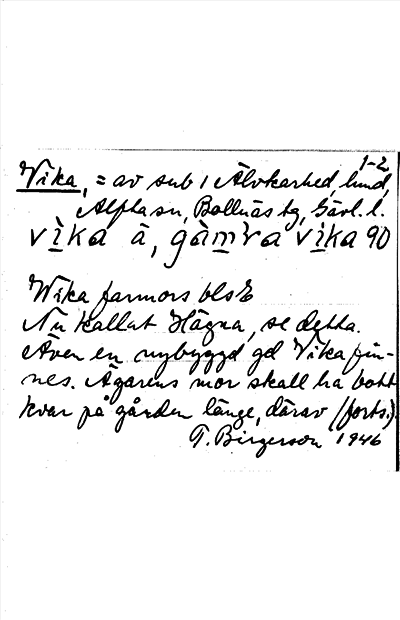 1-2
Vika, = av sub 1 Älvkarhed, hmd,
Alfta sn, Bollnäs tg, Gävl. l.
vika ä, gamra vika 90
Wika farmors bls E
Nu kallat Hägna, se detta.
Även en nybyggd gd Vika fin-
nes. Ägarens mor skall ha bott
kvar på gården länge, därav (forts.)
T. Birgerson 1946